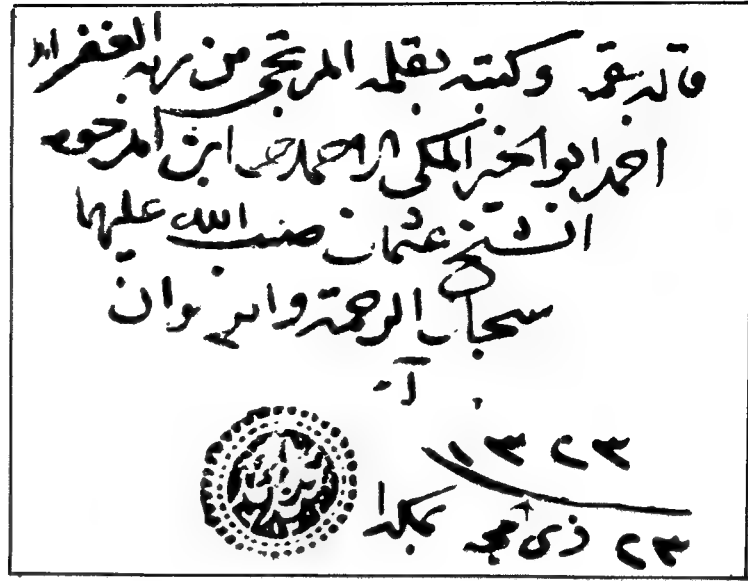 قاله بفمه وكتبه بقلمه المرتجى من ربه الغفران
احمد ابو الخير المكي الاحمدي ابن المرحوم
الشيخ عثمان صب الله عليهما
سجال الرحمة والرضوان
آ
٢٣ ذى حجه ١٣٢٣